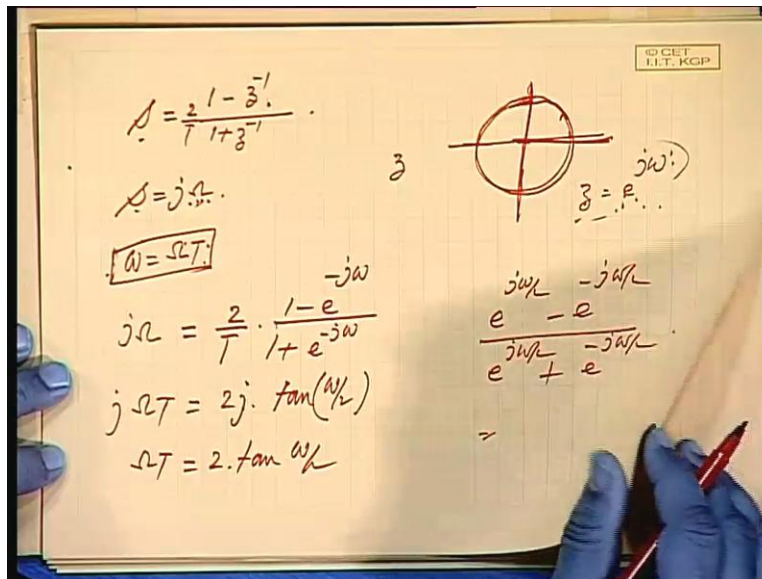 © CET
I.I.T. KGP
s = 2/T (1 - z^-1)/(1 + z^-1) .
s = jΩ.
z
z = e^jω
ω = ΩT
jΩ = 2/T · (1 - e^-jω)/(1 + e^-jω)
(e^jω/2 - e^-jω/2)/(e^jω/2 + e^-jω/2) .
jΩT = 2j. tan(ω/2)
=
ΩT = 2. tan ω/2